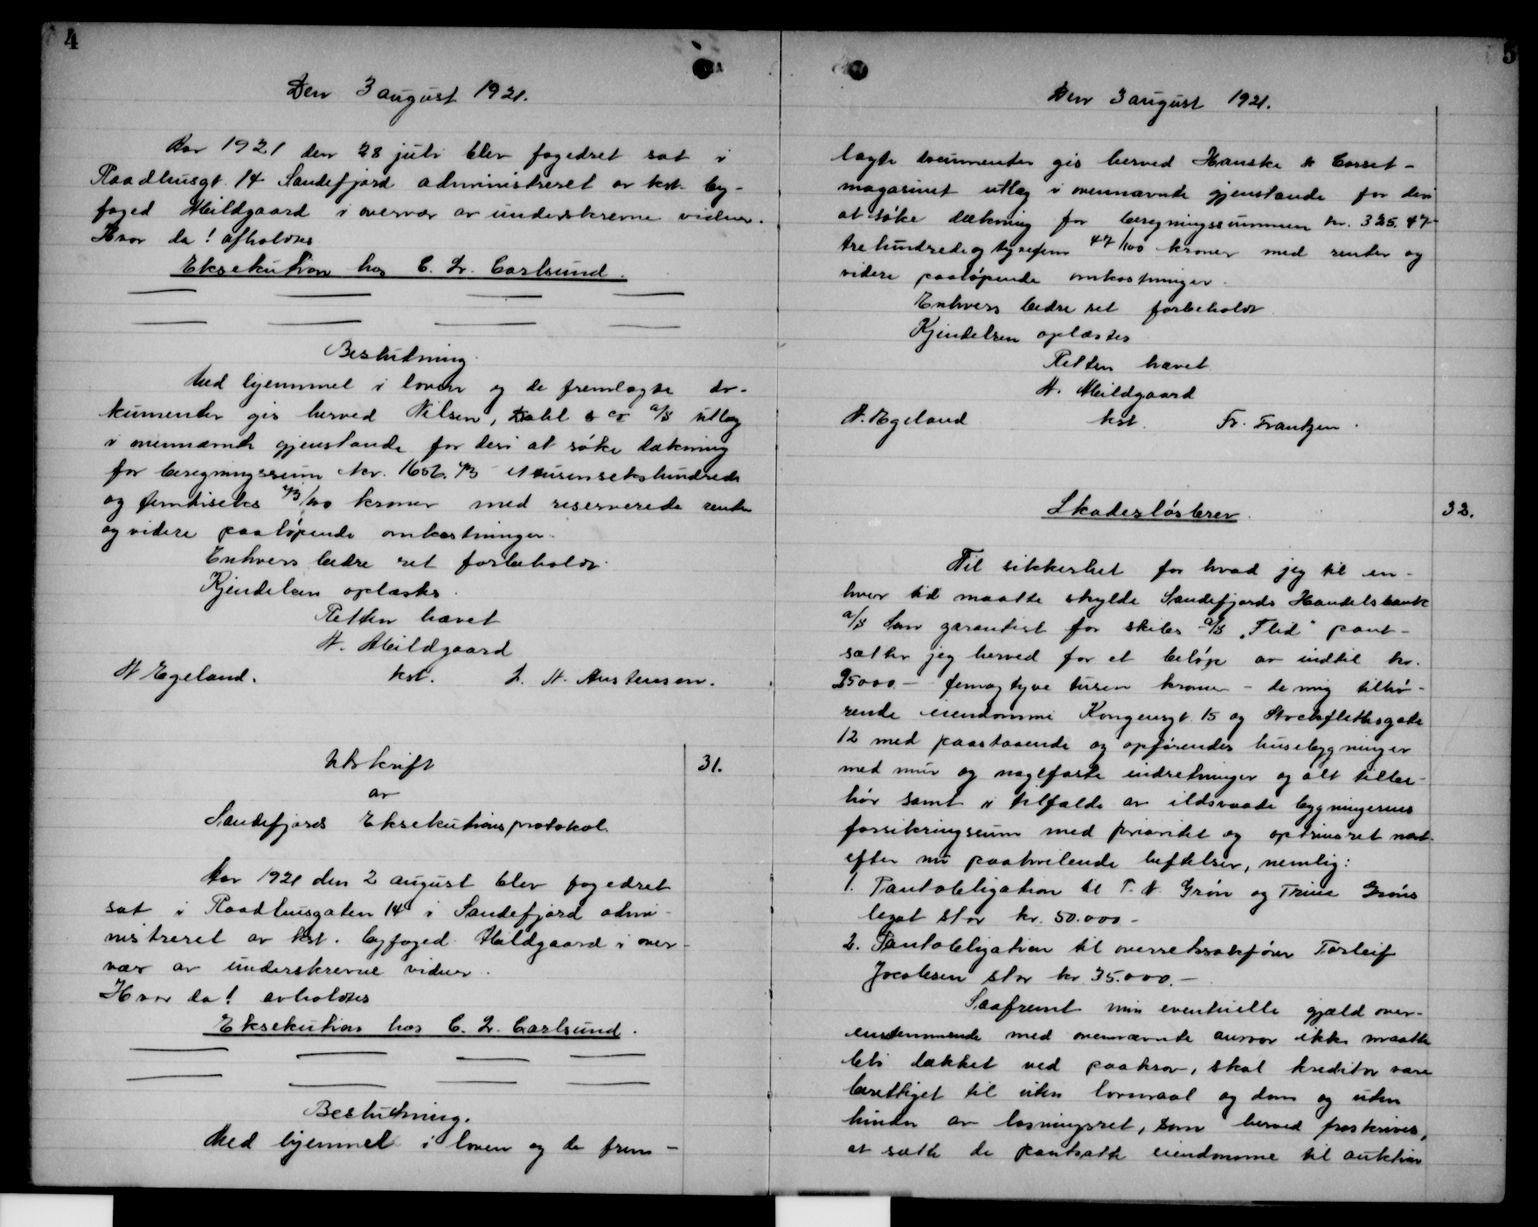 4
Den 3 august 1921.
Aar 1921 den 28 juli blev fogedret sat i
Raadhusgt. 14 Sandefjord administreret av kst. by-
foged Mildgaard i overvær av underskrevne vidner.
Hvor da! afholdtes
Eksekution hos C. L. Carlsund.
Beslutning.
Med hjemmel i loven og de fremlagte do-
kumenter gis herved Nilsen, Dahl & co a/s utlæg
i ovennævnte gjenstande for deri at søke dækning
for beregningssum kr. 1656.43 ettusensekshundrede
og femtiseks 43/100 kroner med reserverede renter
og videre paaløpende omkostninger.
Enhvers bedre ret forbeholdt.
Kjendelsen oplæstes.
Retten hævet
N. Mildgaard
N Egeland. kst. L. N. Austensen.
Utskrift 31.
av
Sandefjords Eksekutionsprotokol.
Aar 1921 den 2 august blev fogedret
sat i Raadhusgaten 14 i Sandefjord admi-
nistreret av kst. byfoged Mildgaard i over-
vær av underskrevne vidner.
Hvor da! avholdtes
Eksekution hos C. L. Carlsund.
Beslutning.
Med hjemmel i loven og de frem-
5
Den 3 august 1921.
lagte documenter gis herved Hanske & Corset-
magasinet utlæg i ovennævnte gjenstande for deri
at søke dækning for beregningssummen kr. 325.47
tre hundrede og tyvefem 47/100 kroner med renter og
videre paaløpende omkostninger.
Enhvers bedre ret forbeholdt.
Kjendelsen oplæstes
Retten hævet
N. Mildgaard
N. Egeland kst. Fr. Frantzen.
Skadesløsbrev. 32.
Til sikkerhet for hvad jeg til en-
hver tid maatte skylde Sandefjords Handelsbank
a/s som garantist for skibs a/s "Flid" pant-
sætter jeg herved for et beløp av indtil kr.
25000 - femogtyve tusen kroner - de mig tilhø-
rende eiendomme Kongensgt. 15 og Stockflethsgate
12 med paastaaende og opførendes husebygninger
med mur og nagelfaste indretninger og alt tilbe-
hør samt i tilfælde av ildsvaade bygningernes
forsikringssum med prioritet og optrinsret næst
efter nu paahvilende heftelser, nemlig:
1. Pantobligation til T. N. Grøn og Trine Grøns
legat stor kr. 50.000 -
2. Pantobligation til overretssakfører Torleif
Jacobsen stor kr 35.000. -
Saafremt min eventuelle gjæld over-
ensstemmende med ovennævnte ansvar ikke maatte
bli dækket ved paakrav, skal kreditor være
berettiget til uten lovmaal og dom og uten
hinder av løsningsret, som herved fraskrives,
at sætte de pantsatte eiendomme til auktion